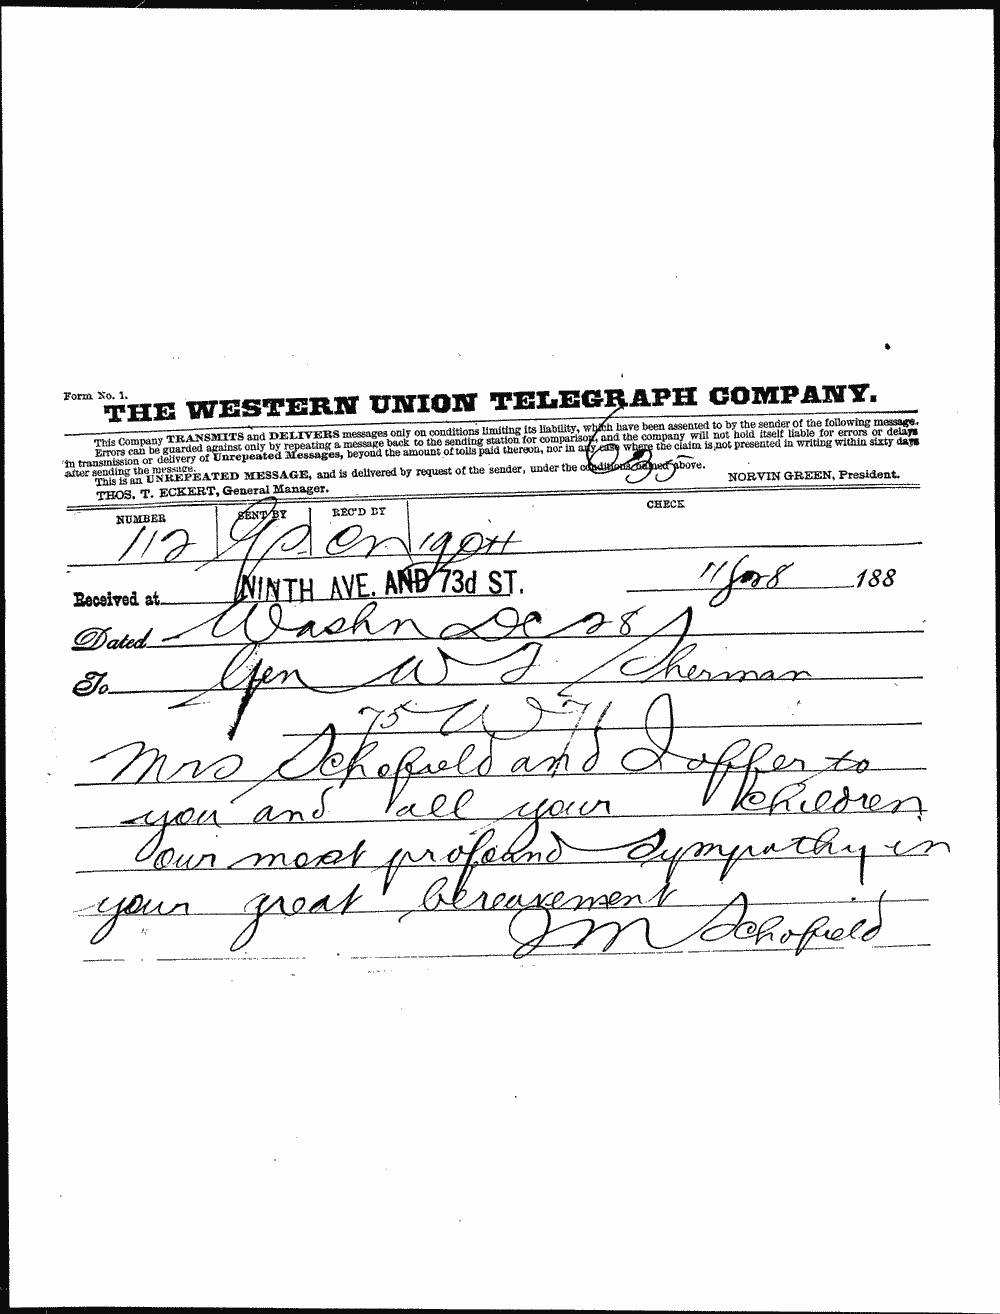 Form No. 1.
THE WESTERN UNION TELEGRAPH COMPANY.
This Company TRANSMITS and DELIVERS messages only on conditions limiting its liability, which have been assented to by the sender of the following message.
Errors can be guarded against only by repeating a message back to the sending station for comparison, and the company will not hold itself liable for errors or delays
in transmission or delivery of Unrepeated Messages, beyond the amount of tolls paid thereon, nor in any case where the claim is not presented in writing within sixty days
after sending the message.
This is an UNREPEATED MESSAGE, and is delivered by request of the sender, under the conditions named above.
THOS. T. ECKERT, General Manager. NORVIN GREEN, President.
635
NUMBER SENT BY REC'D BY CHECK
112
Received at NINTH AVE. AND 73d ST. 188
Dated Washn DC 28
To Gen W T Sherman
75 W 71
Mrs Schofield and I offer to
you and all your children
our most profound sympathy in
your great bereavement
JM Schofield